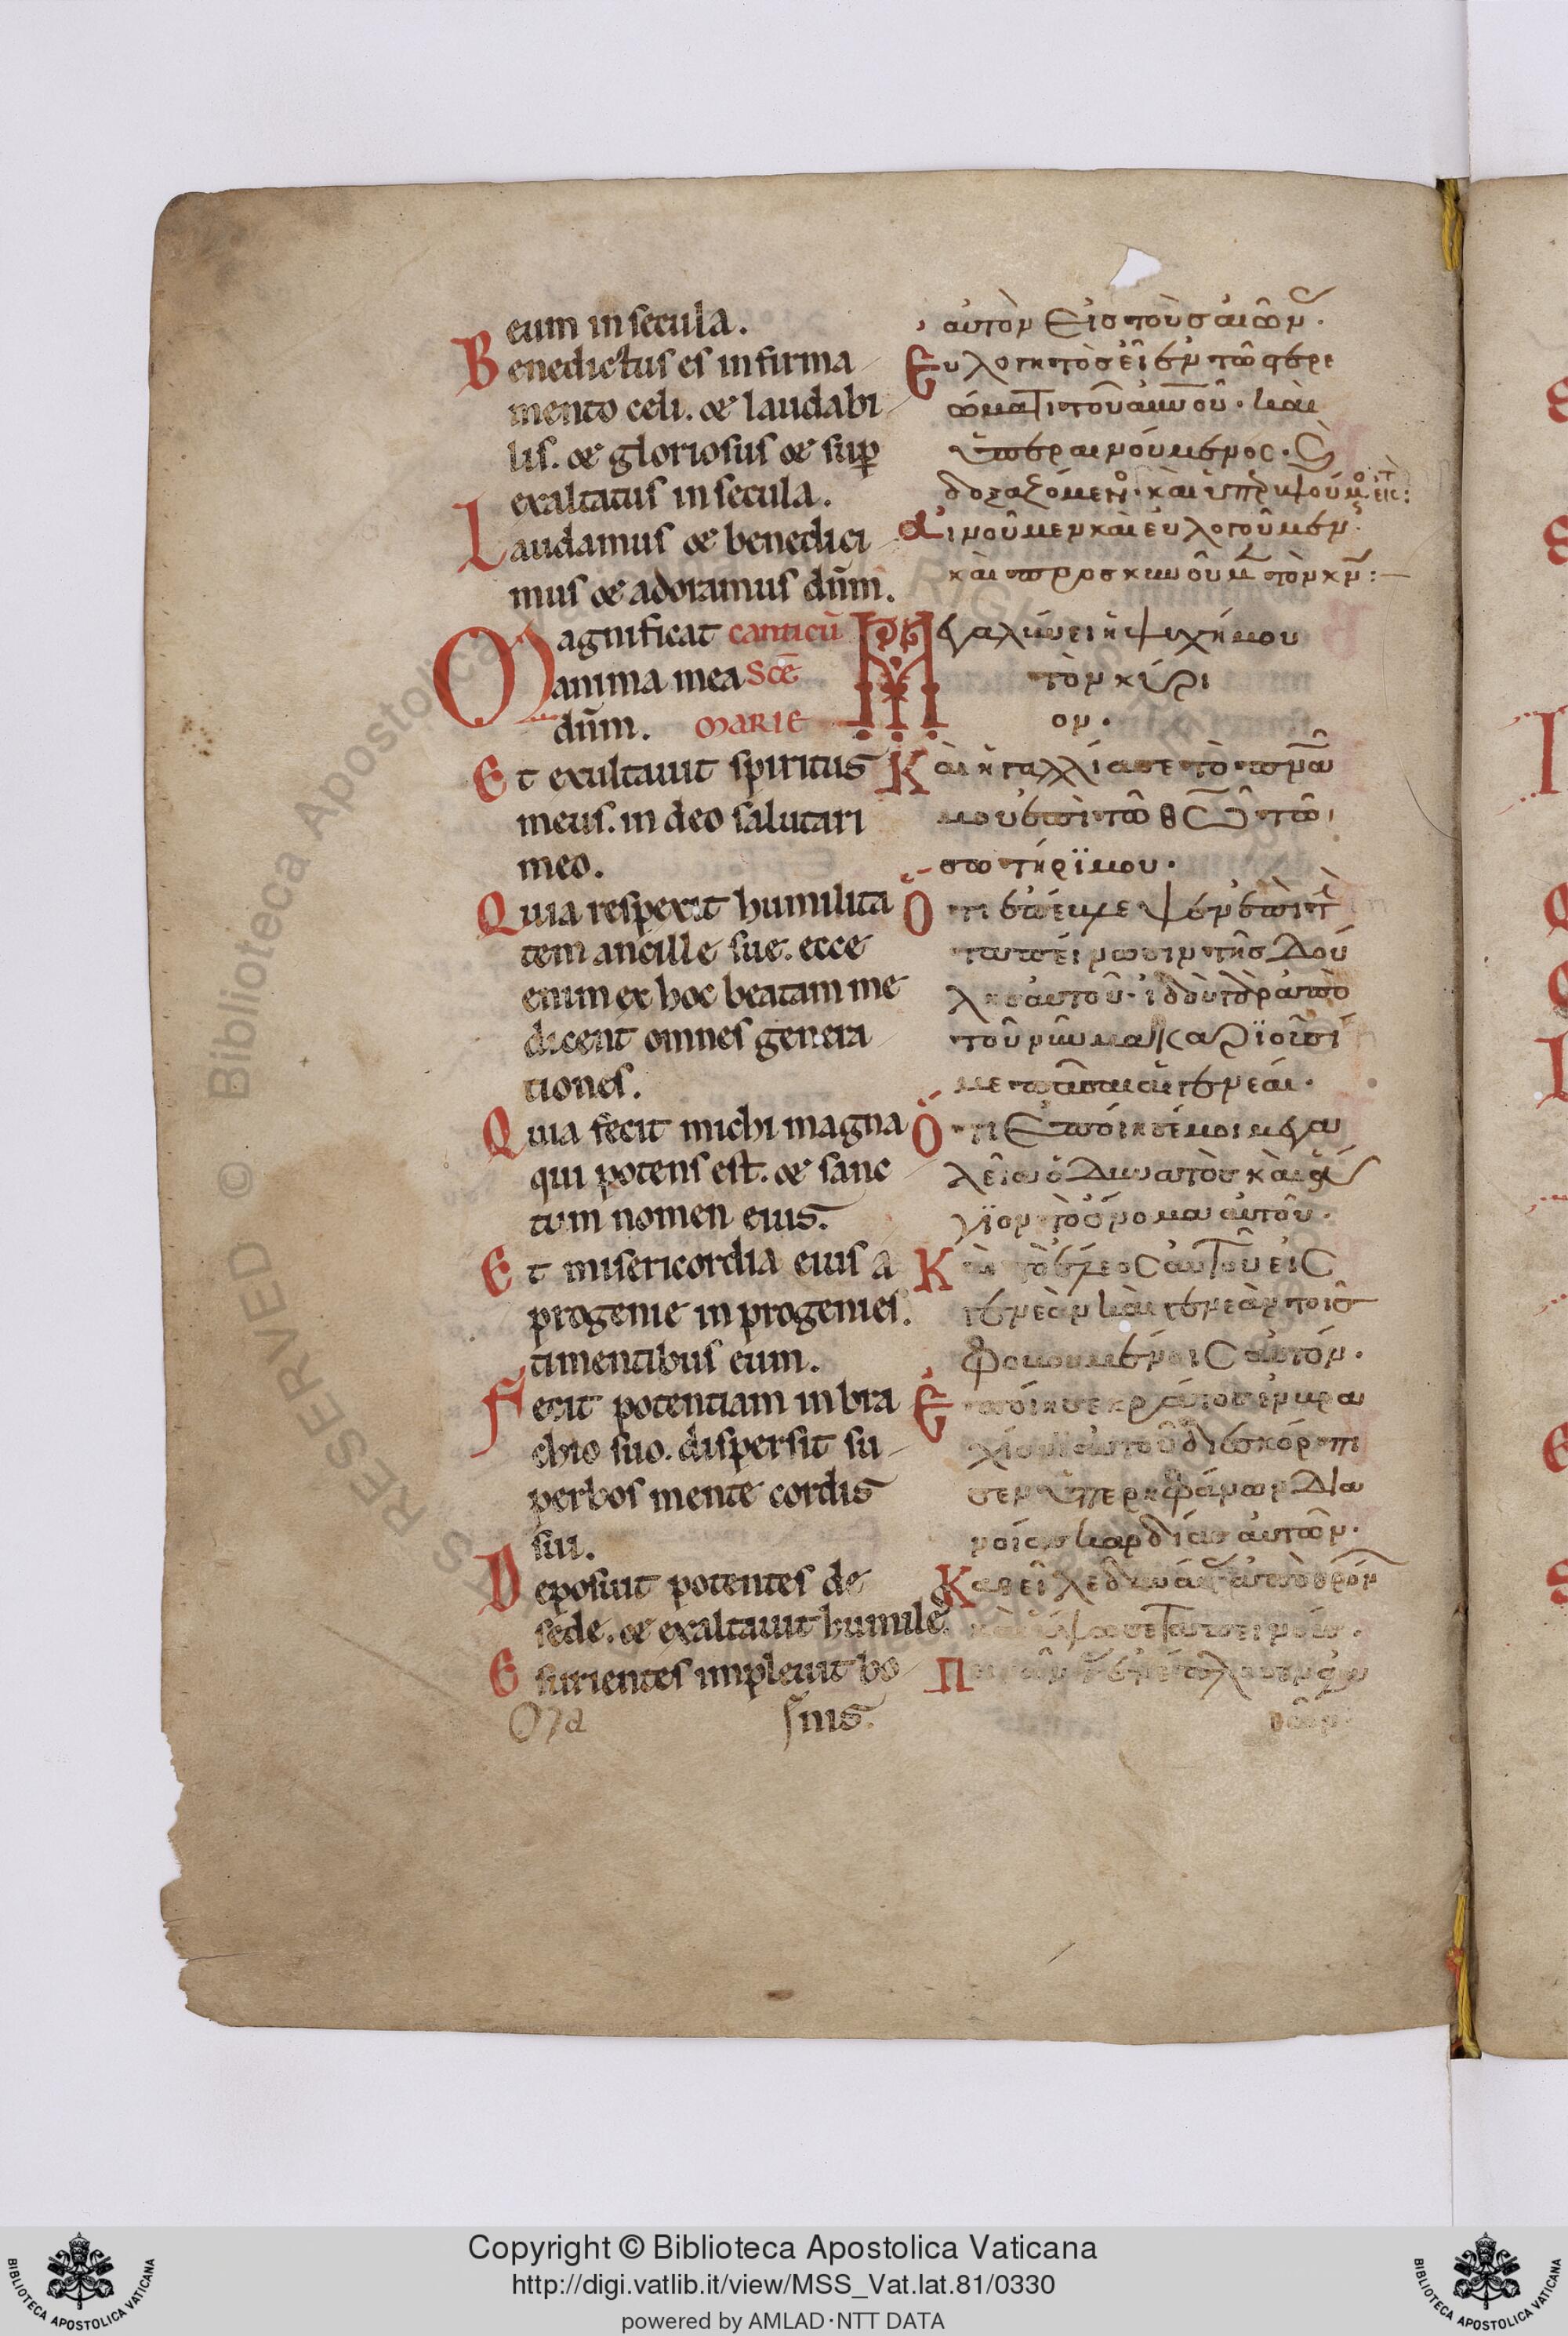 eum in secula.
Benedictus es in firma
mento celi. et laudabi
lis. et gloriosus et sup
exaltatus in secula.
Laudamus et benedici
mus et adoramus dñm.
Magnificat canticũ
anima mea Scẽ
dñm. MARIE
Et exultauit spiritus
meus. in deo salutari
meo.
Quia respexit humilita
tem ancille sue. ecce
enim ex hoc beatam me
dicent omnes genera
tiones.
Quia fecit michi magna
qui potens est. et sanc
tum nomen eius.
Et misericordia eius a
progenie in progenies.
timentibus eum.
Fecit potentiam in bra
chio suo. dispersit su
perbos mente cordis
sui.
Deposuit potentes de
sede. et exaltauit humiles.
Esurientes impleuit bo
nis.
αὐτὸν εἰς τοὺς αἰῶν.
Εὐλογητὸς εἶ ἐν τῶ στερε
ώματι τοῦ οὐνοῦ. καὶ
δοξαζόμεν. καὶ
αἰνοῦμεν καὶ εὐλογοῦμεν.
καὶ προσκυνοῦμ τὸν κν:
Μεγαλύνει ἡ ψυχή μου
τὸν κύρι
ον.
Καὶ ἠγαλλίασε τὸ πνμα
μου ἐπὶ τῶ θω τῶ
σωτήρϊ μου.
Ὅτι ἐπέβλεψεν ἐπὶ τ
ταπείνωσιν τῆς δού
λης αὐτοῦ. ἰδοὺ γὰρ ἀπὸ
τοῦ νῦν μακαρϊοῦσί
με πᾶσαι αἱ γενεαί.
Ὅτι ἐποίησέ μοι μεγα
λεῖα ὁ δυνατὸς καὶ ἅ
γϊον τὸ ὄνομα αὐτοῦ.
Καὶ τὸ ἔλεος αὐτοῦ εἰς
γενεὰν καὶ γενεὰν τοῖς
φοβουμένοις αὐτόν.
Ἐποίησε κράτος ἐν βρα
χίονι αὐτοῦ διεσκόρπι
σεν ὑπερηφάνων δια
νοίας καρδίας αὐτῶν.
Καθεῖλε δυνάς ἀπὸ θρόν
καὶ ὕψωσε ταπεινούς.
RESERVED © Biblioteca Apostolica Vaticana
Copyright © Biblioteca Apostolica Vaticana
http://digi.vatlib.it/view/MSS_Vat.lat.81/0330
powered by AMLAD·NTT DATA
BIBLIOTECA APOSTOLICA VATICANA
BIBLIOTECA APOSTOLICA VATICANA